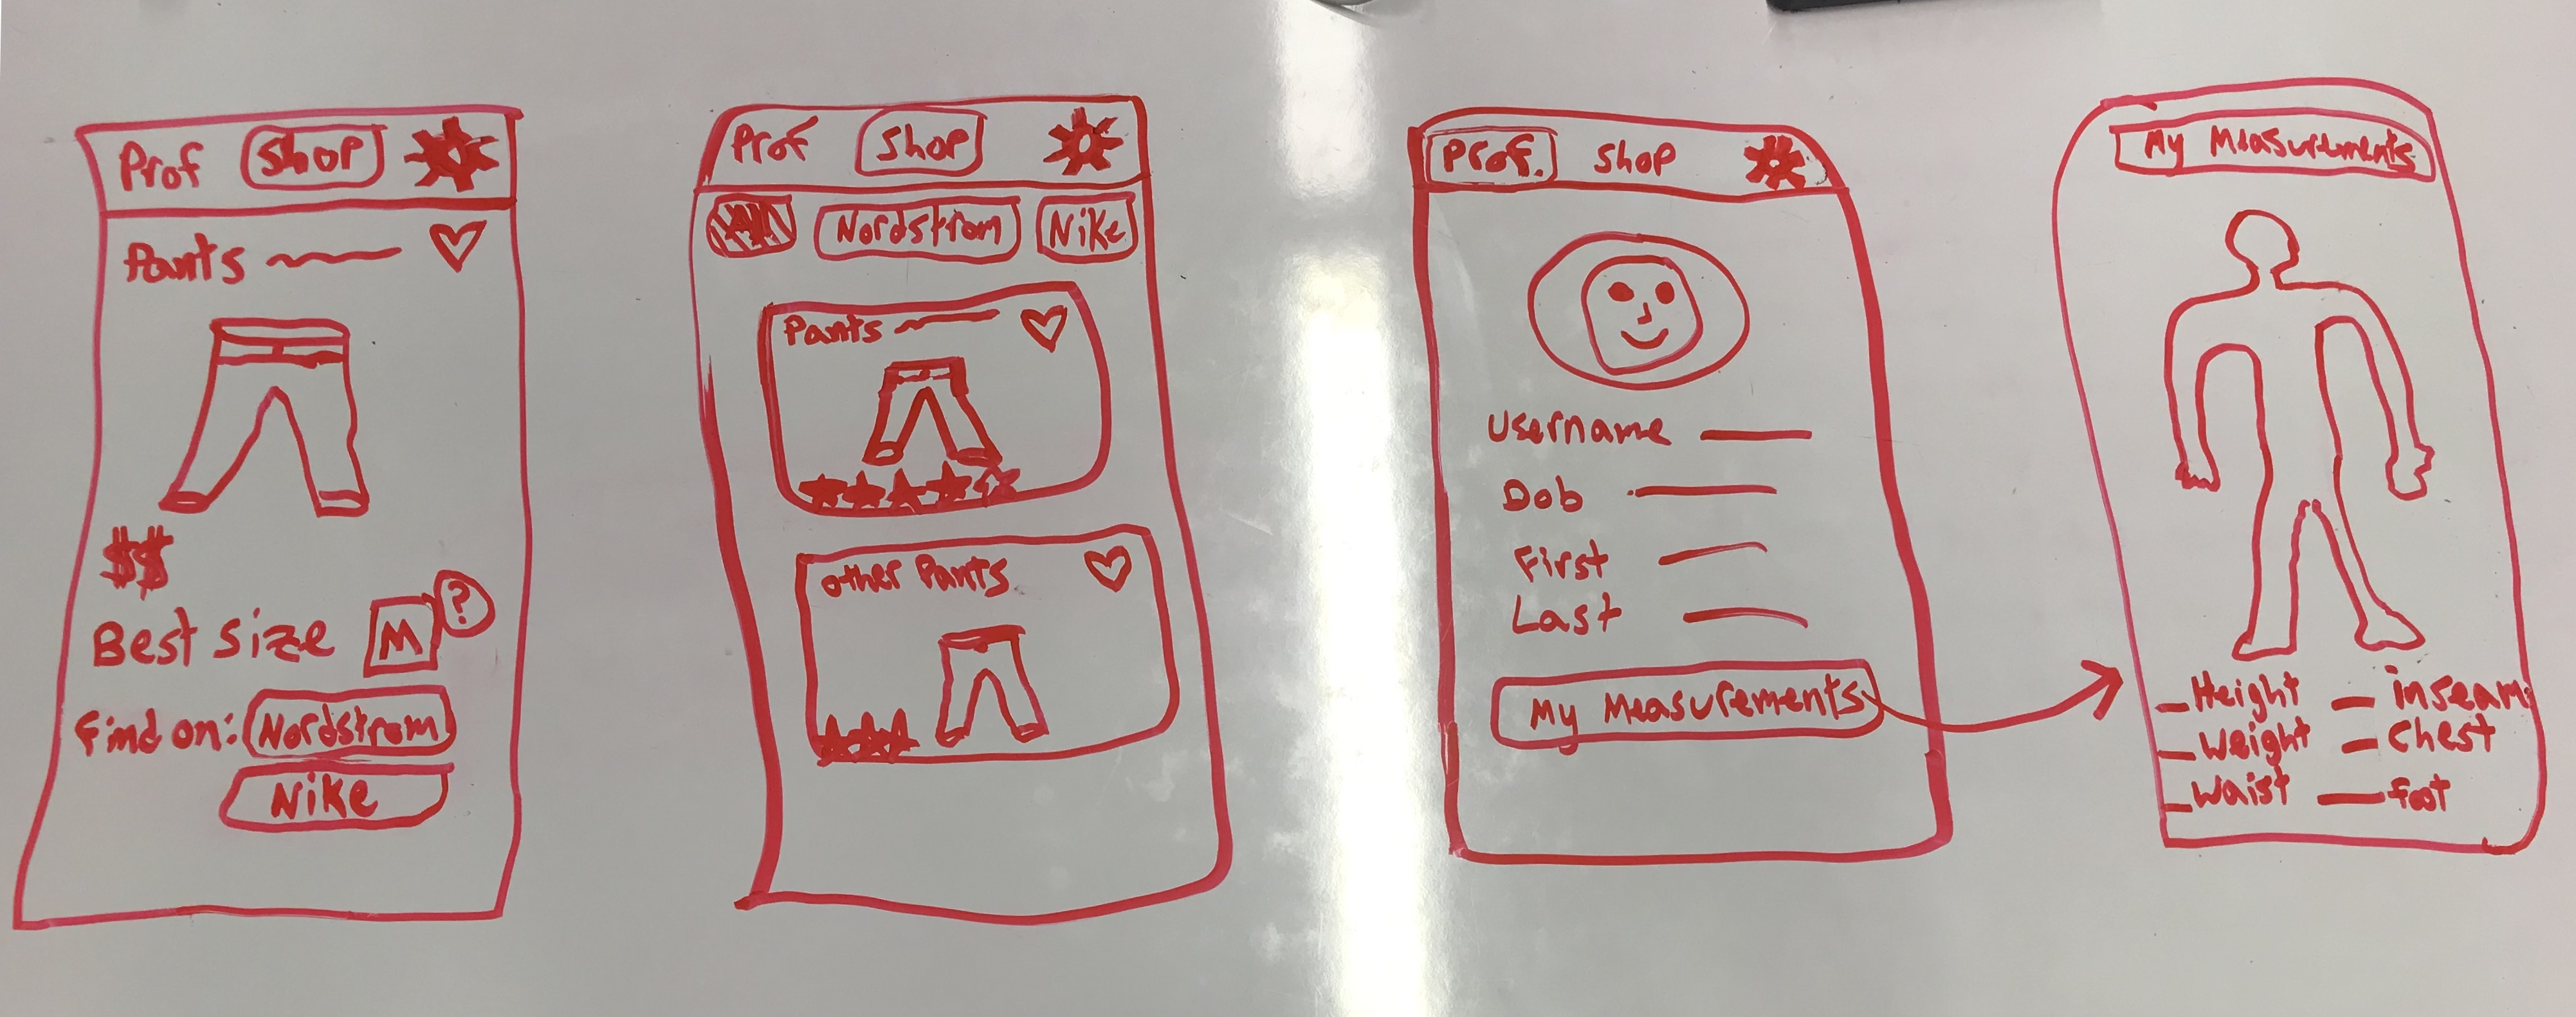 Prof Shop
Pants
$$
Best size M ?
Find on: Nordstrom
Nike
Prof Shop
All Nordstrom Nike
Pants
other Pants
Prof. Shop
Username
Dob
First
Last
My Measurements
My Measurements
Height inseam
Weight Chest
Waist foot